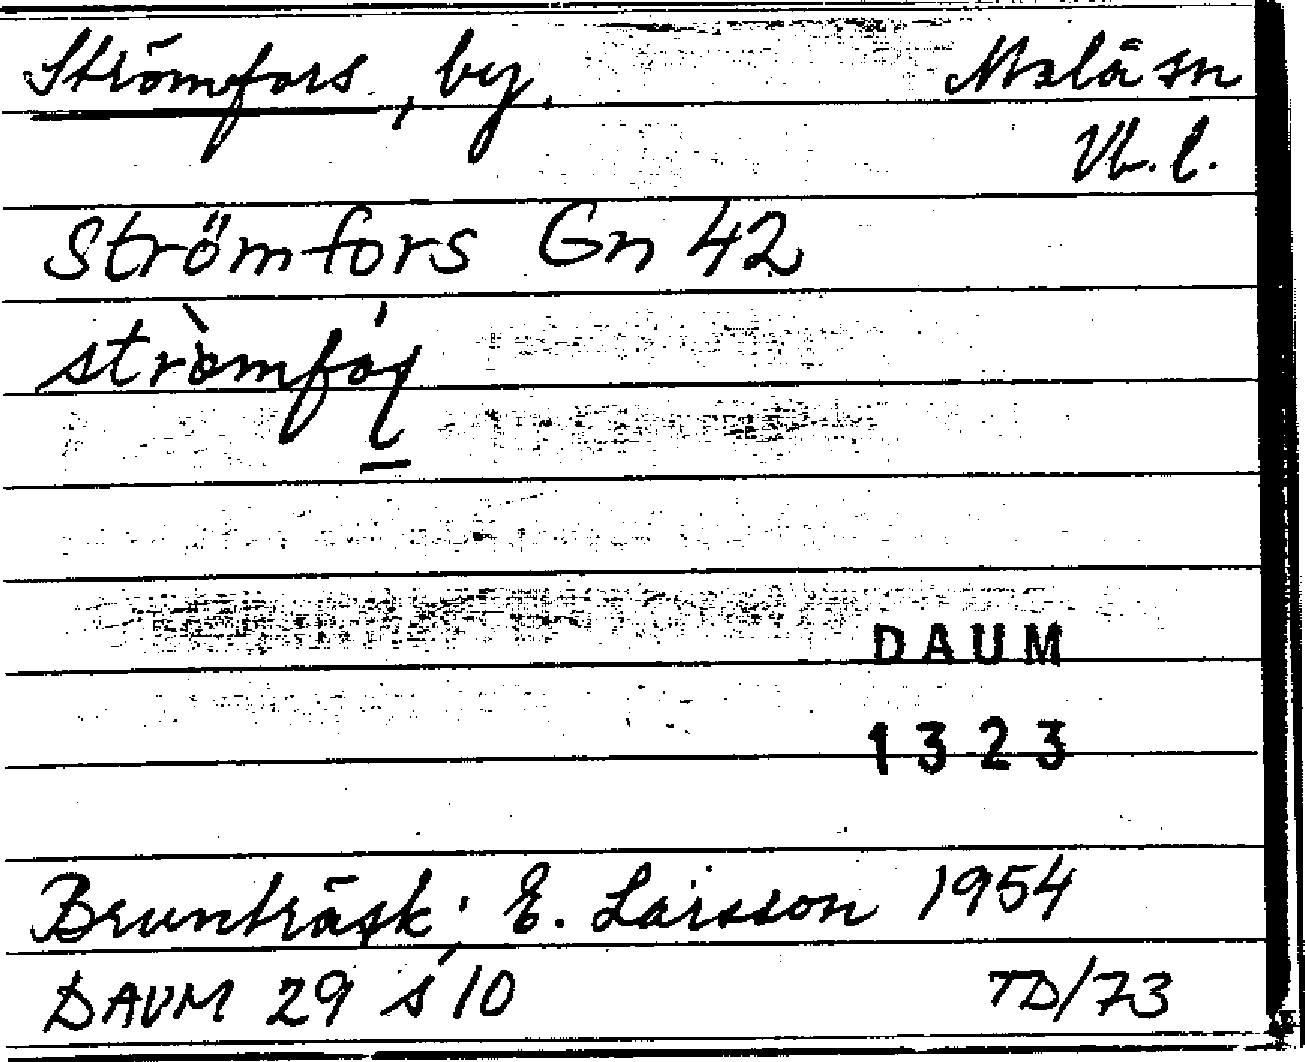 Strömfors, by. Malå sn
Vb. l.
Strömfors Gn 42
DAUM
1323
Brunträsk; E. Larsson 1954
DAUM 29 s 10 TD/73